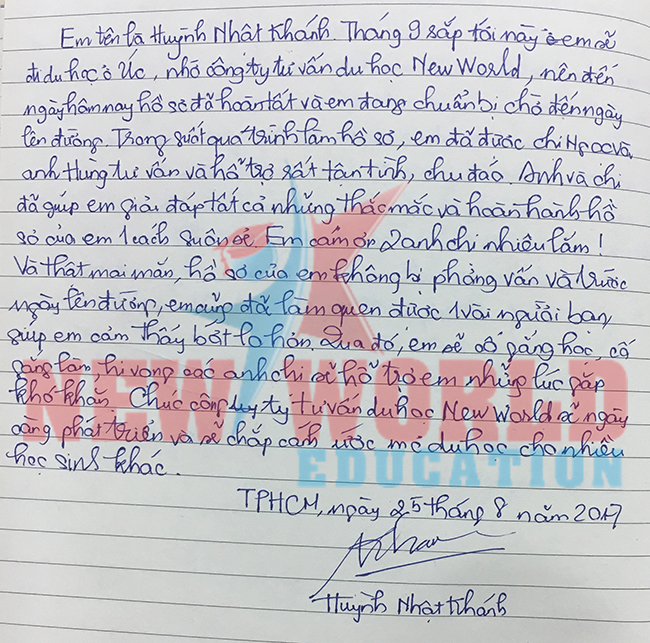 Em tên là Huỳnh Nhật Khánh. Tháng 9 sắp tới này em sẽ
đi du học ở Úc, nhờ công ty tư vấn du học New World, nên đến
ngày hôm nay hồ sơ đã hoàn tất và em đang chuẩn bị chờ đến ngày
lên đường. Trong suốt quá trình làm hồ sơ, em đã được chị Ngọc và
anh Hùng tư vấn và hỗ trợ rất tận tình, chu đáo. Anh và chị
đã giúp em giải đáp tất cả những thắc mắc và hoàn thành hồ
sơ của em 1 cách suôn sẻ. Em cám ơn 2 anh chị nhiều lắm!
Và thật mai mắn, hồ sơ của em không bị phỏng vấn và trước
ngày lên đường, em cũng đã làm quen được 1 vài người bạn,
giúp em cảm thấy bớt lo hơn. Qua đó, em sẽ cố gắng học, cố
gắng làm, hi vọng các anh chị sẽ hỗ trợ em những lúc gặp
khó khăn. Chúc công ty tư vấn du học New World sẽ ngày
càng phát triển và sẽ chắp cánh ước mơ du học cho nhiều
học sinh khác.
NEW WORLD
EDUCATION
TPHCM, ngày 25 tháng 8 năm 2017
Huỳnh Nhật Khánh